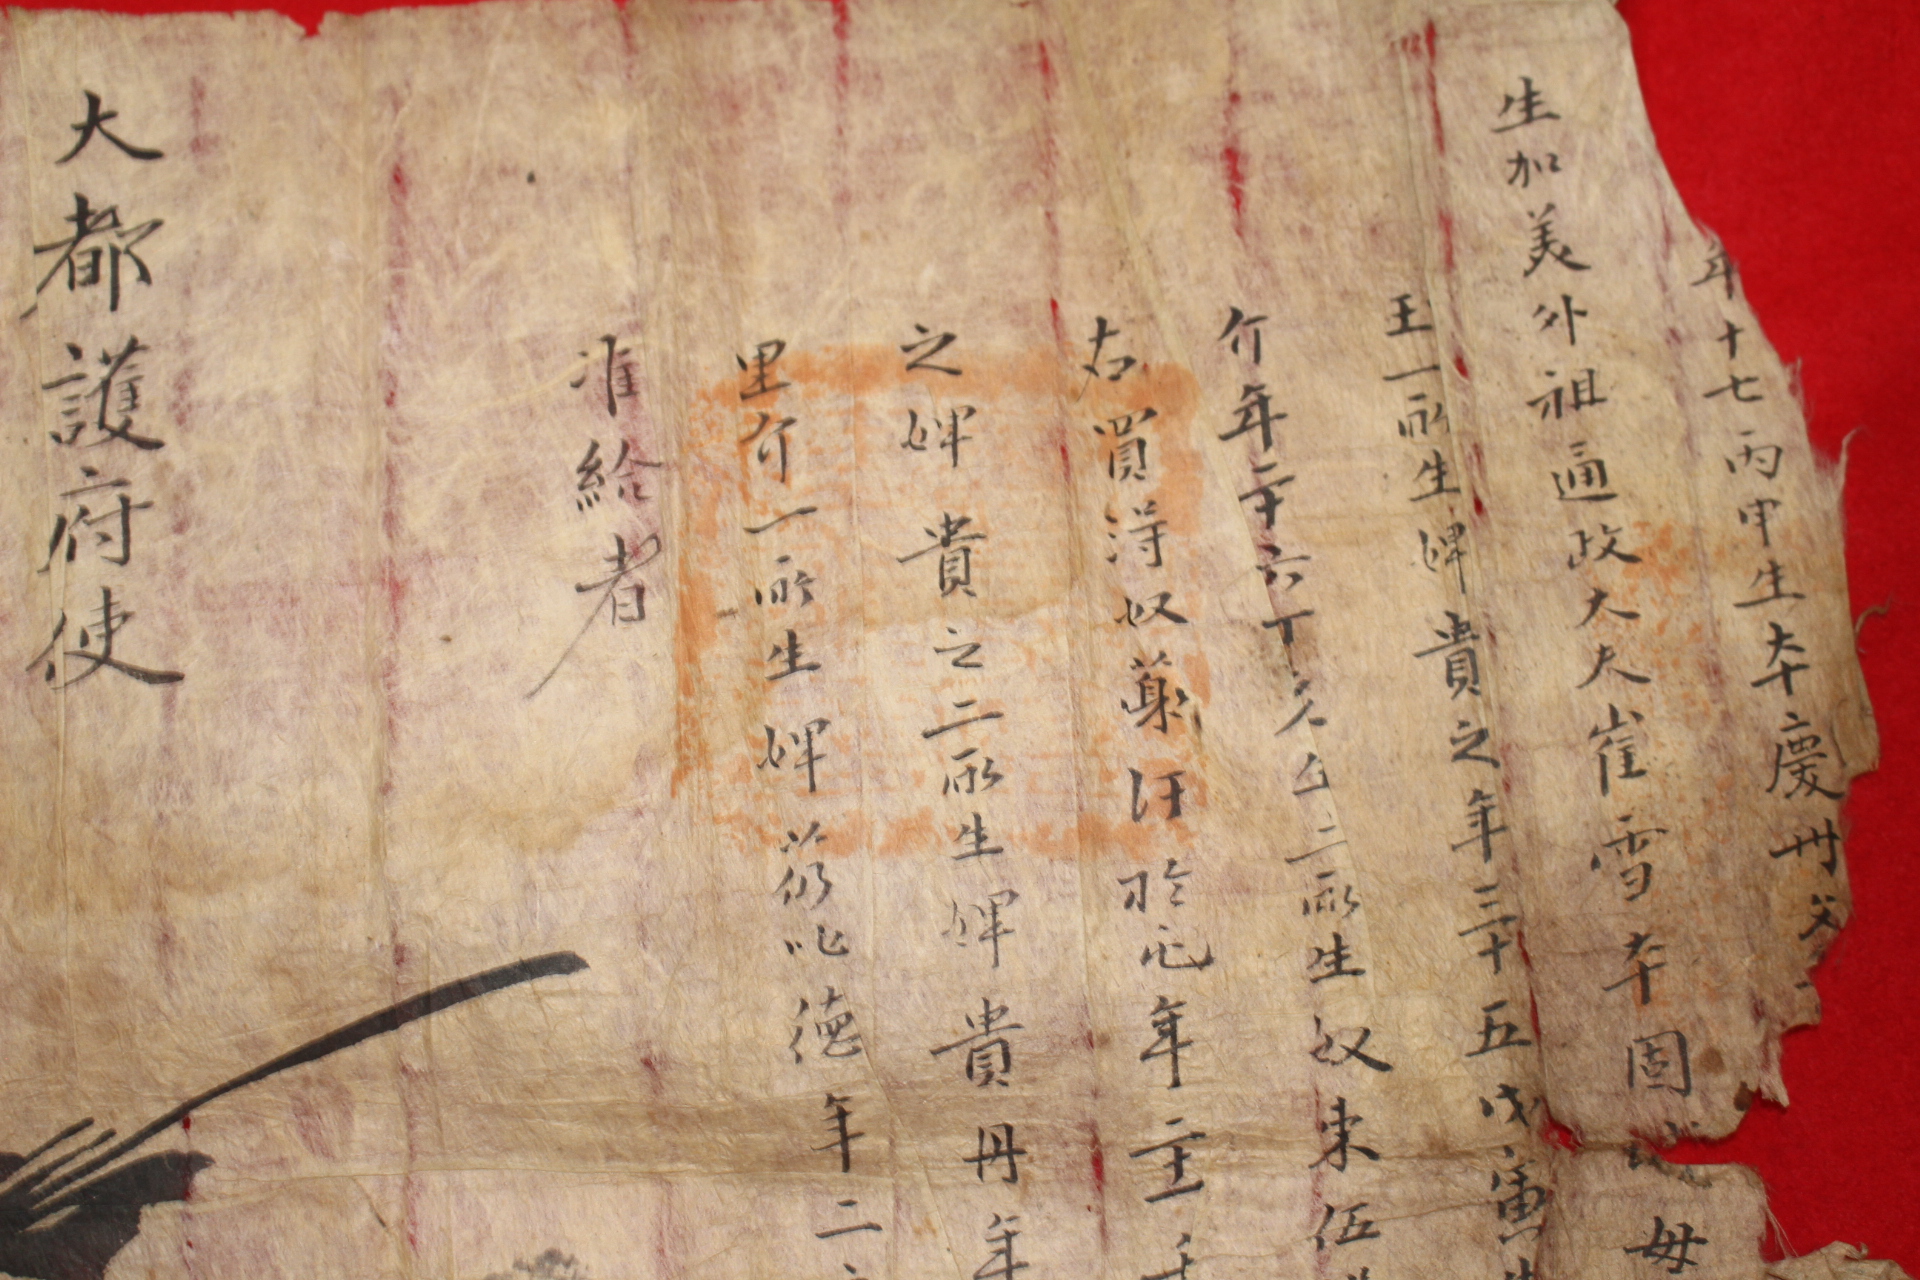 年十七丙申生本慶州父
生加美外祖通政大夫崔雪本固城母
王一所生婢貴之年三十五戊寅生
介年二十六丁亥生二所生奴東伍
右買得奴 汗 年二十
之婢貴之二所生婢貴丹年
里介一所生婢 德年二
准給者
大都護府使